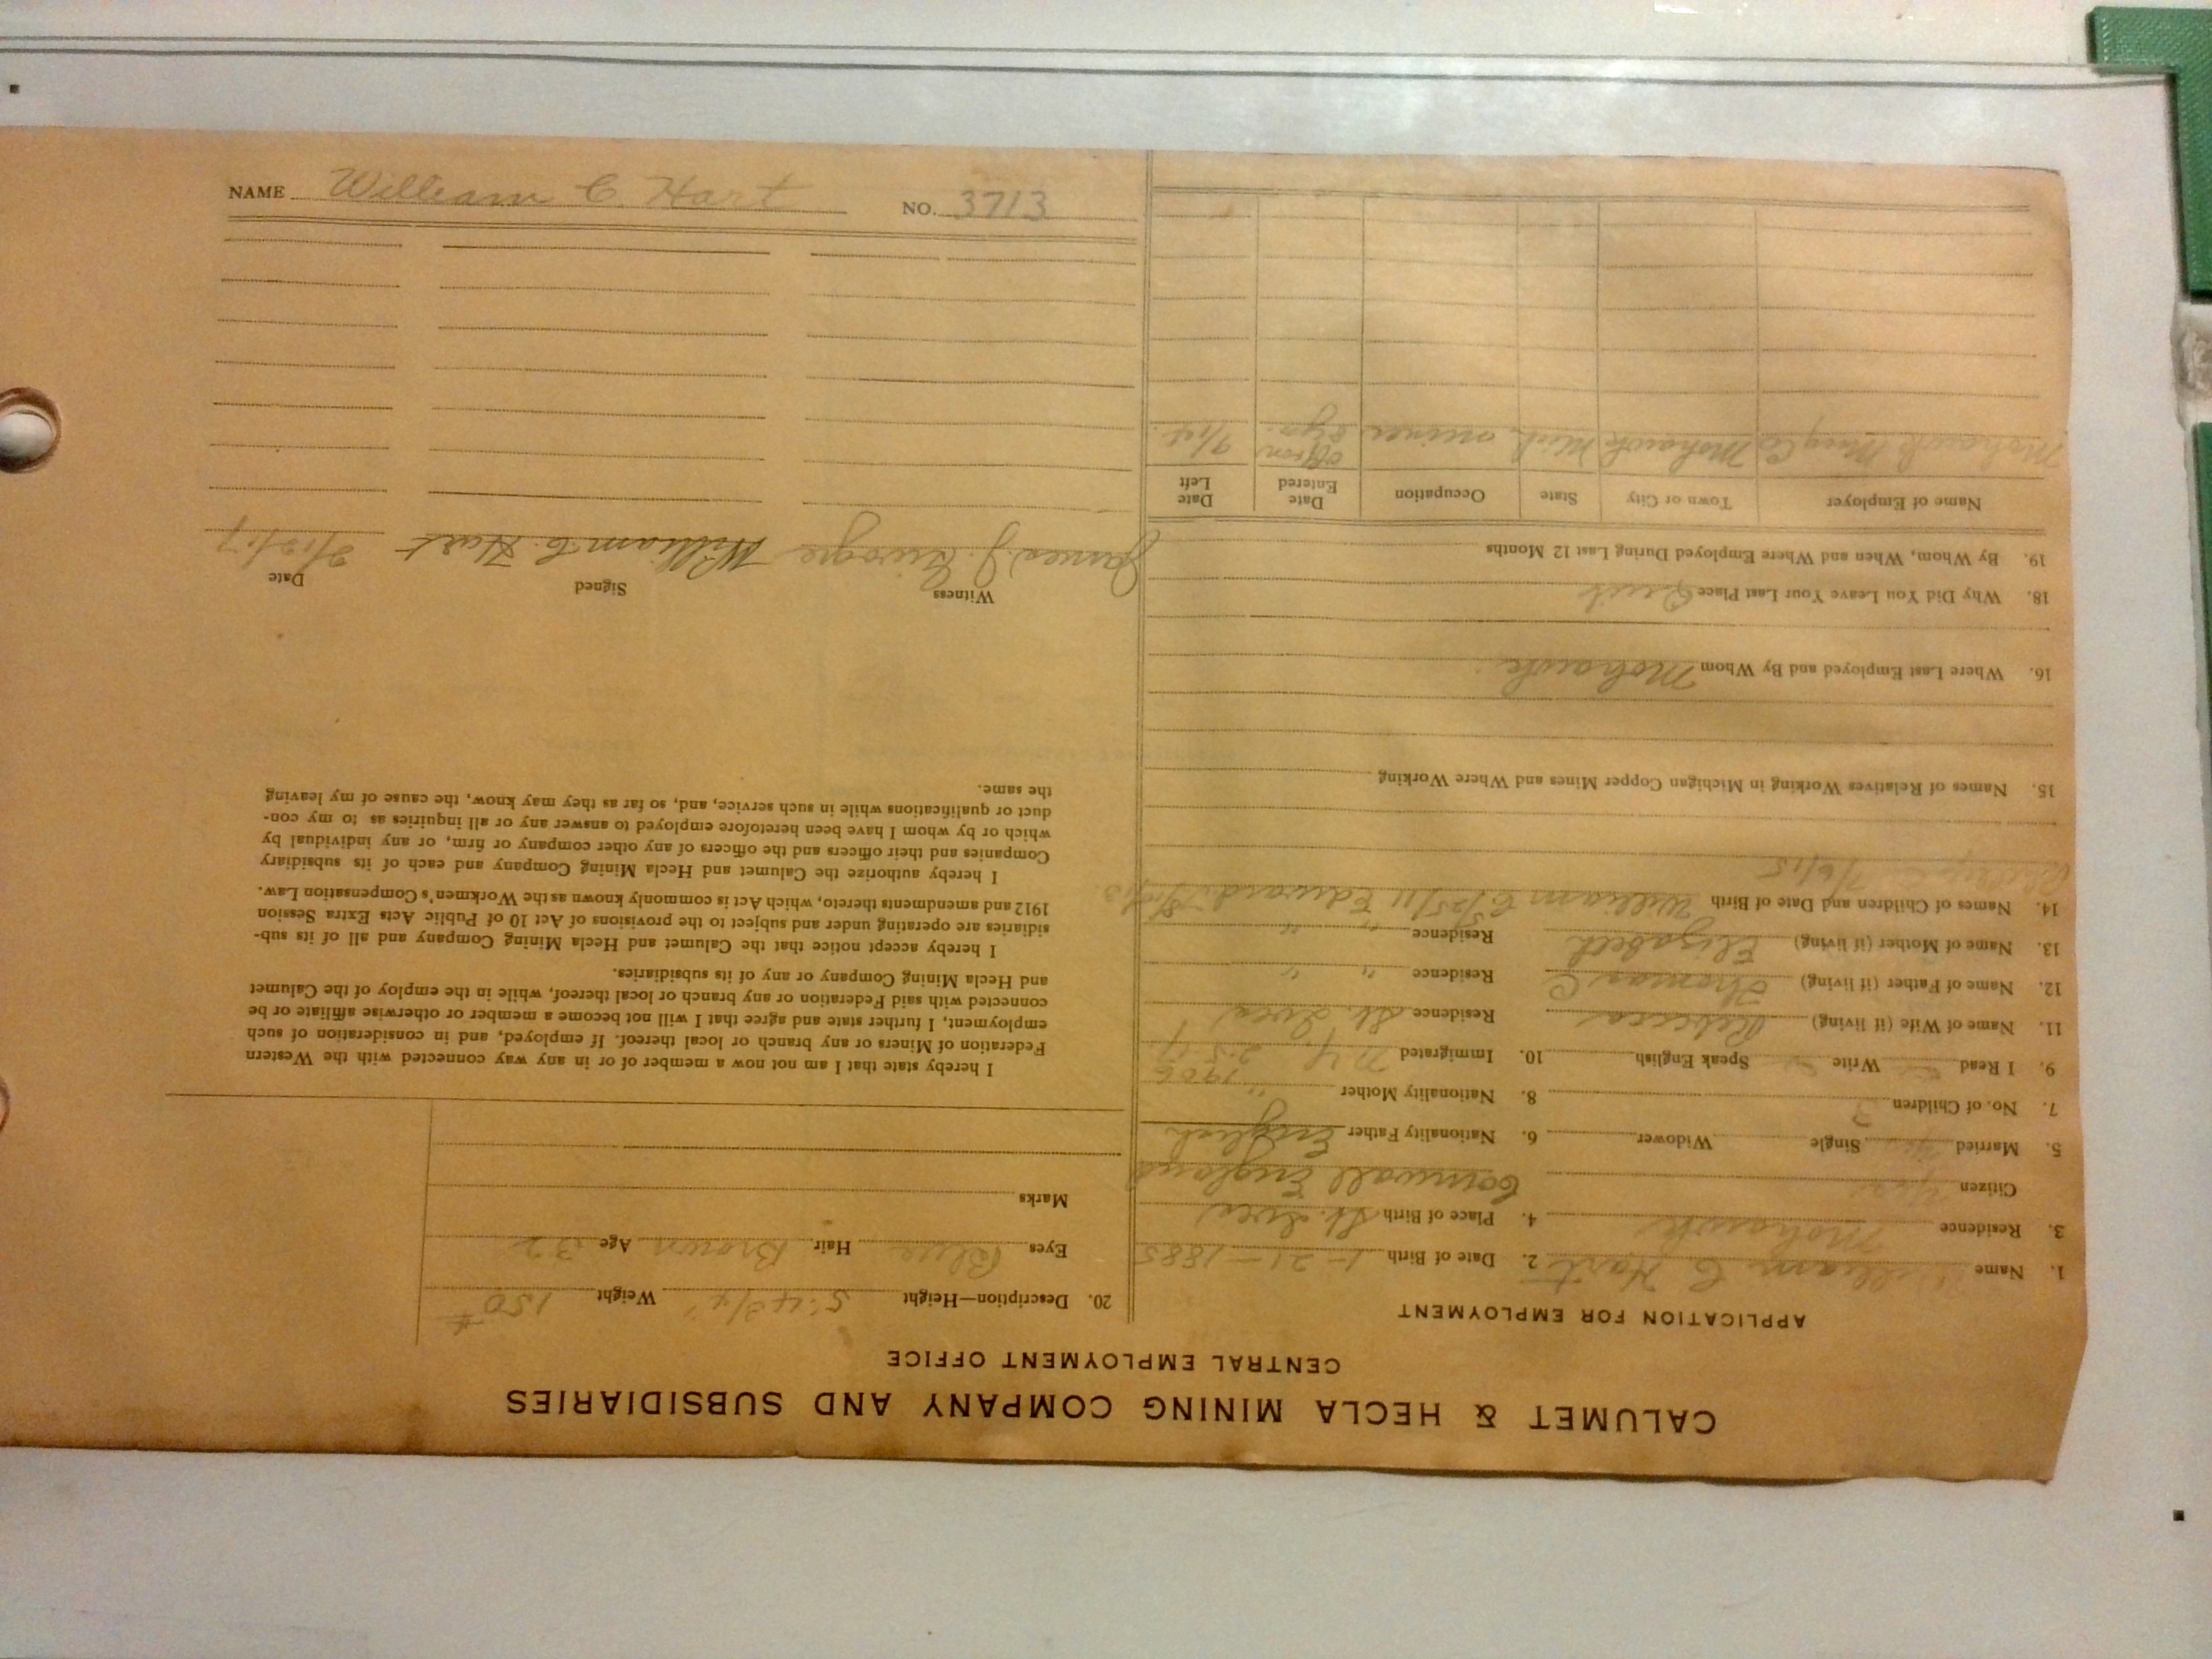 CALUMET & HECLA MINING COMPANY AND SUBSIDIARIES
CENTRAL EMPLOYMENT OFFICE
APPLICATION FOR EMPLOYMENT
1. Name William C. Hart 2. Date of Birth 1-21-1885
3. Residence Mohawk 4. Place of Birth St. Ives
Citizen Cornwall England
5. Married Single Widower 6. Nationality Father English
7. No. of Children 3 8. Nationality Mother "
1906
9. I Read Write Speak English 10. Immigrated N.Y.
11. Name of Wife (if living) Rebecca Residence St. Ives
12. Name of Father (if living) Thomas C Residence " "
13. Name of Mother (if living) Elizabeth Residence " "
14. Names of Children and Date of Birth William C Edward
7/6/15
15. Names of Relatives Working in Michigan Copper Mines and Where Working
16. Where Last Employed and By Whom Mohawk
18. Why Did You Leave Your Last Place Quit
19. By Whom, When and Where Employed During Last 12 Months
Name of Employer Town or City State Occupation Date Entered Date Left
Mohawk Mng Co Mohawk Mich miner
20. Description—Height 5' 4 3/4" Weight 150 #
Eyes Blue Hair Brown Age 32
Marks
I hereby state that I am not now a member of or in any way connected with the Western
Federation of Miners or any branch or local thereof. If employed, and in consideration of such
employment, I further state and agree that I will not become a member or otherwise affiliate or be
connected with said Federation or any branch or local thereof, while in the employ of the Calumet
and Hecla Mining Company or any of its subsidiaries.
I hereby accept notice that the Calumet and Hecla Mining Company and all of its sub-
sidiaries are operating under and subject to the provisions of Act 10 of Public Acts Extra Session
1912 and amendments thereto, which Act is commonly known as the Workmen's Compensation Law.
I hereby authorize the Calumet and Hecla Mining Company and each of its subsidiary
Companies and their officers and the officers of any other company or firm, or any individual by
which or by whom I have been heretofore employed to answer any or all inquiries as to my con-
duct or qualifications while in such service, and, so far as they may know, the cause of my leaving
the same.
Witness Signed Date
James J. William C. Hart
NAME William C. Hart NO. 3713